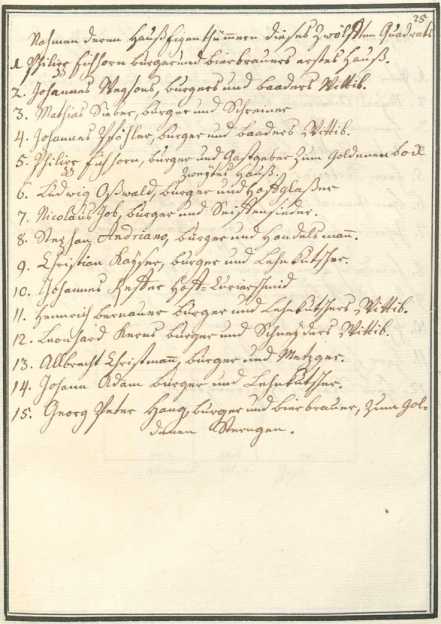 25
Nahmen deren Hauß Eigenthümmern dieses Zwölfften Quadrats
1. Philipp Eichhorn burger und bierbrauers erstes Hauß.
2. Johannes burgers und baaders Wittib.
3. Mathias Sieber, bürger und Schreiner
4. Johannes bürger und baaders Wittib.
5. Philipp Eichhorn, bürger und Gastgeber zum Goldenen bock
zweytes Hauß.
6. Ludwig Oßwald, bürger und Hoffglaßer
7. Nicolaus Job, bürger und Seiffensieder.
8. Stephan Andriano, bürger und Handelsmann.
9. Christian Kayser, bürger und Lehnkutscher.
10. Johannes Hoff-Curierschmid
11. Heinrich bernauer bürger und Lehnkutschers Wittib.
12. Leonhard Kerns bürger und Schneyders Wittib.
13. Albrecht Christmann, bürger und Metzger.
14. Johann Adam bürger und Lehnkutscher.
15. Georg Peter Haug, bürger und bierbrauer, zum Gol-
denen Sterngen.